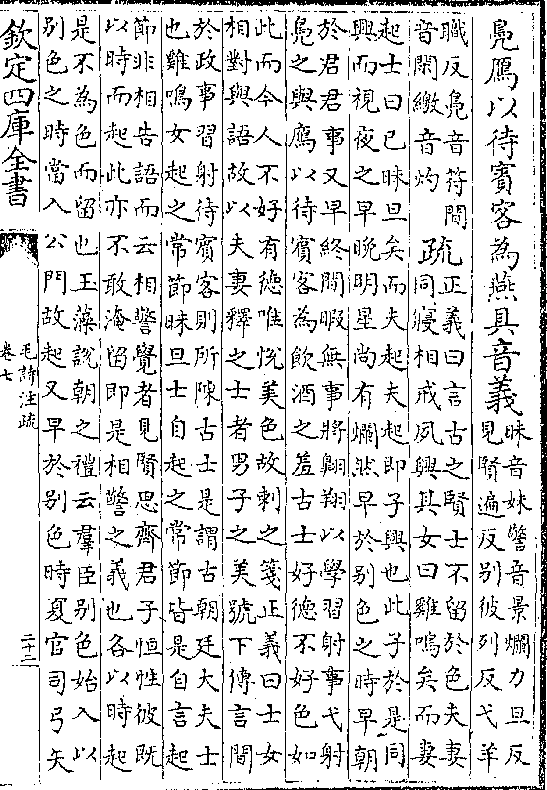 鳬鴈以待賓客為燕具音義
昧音妹警音景爛力旦反
見賢遍反别彼列反弋羊
職反鳬音符閒
音閑繳音灼
疏
正義曰言古之賢士不留於色夫妻
同寢相戒夙興其女曰雞鳴矣而妻
起士曰已昧旦矣而夫起夫起即子興也此子於是同
興而視夜之早晚明星尚有爛然早於别色之時早朝
於君君事又早終閒暇無事將翺翔以學習射事弋射
鳬之與鴈以待賓客為飲酒之羞古士好德不好色如
此而今人不好有德唯悦美色故刺之箋正義曰士女
相對與語故以夫妻釋之士者男子之美號下傳言閒
於政事習射待賓客則所陳古士是謂古朝廷大夫士
也雞鳴女起之常節昧旦士自起之常節皆是自言起
節非相告語而云相警覺者見賢思齊君子恒性彼既
以時而起此亦不敢淹留即是相警之義也各以時起
是不為色而留也玉藻說朝之禮云羣臣别色始入以
别色之時當入公門故起又早於别色時夏官司弓矢
欽定四庫全書
毛詩注疏
卷七
二十二